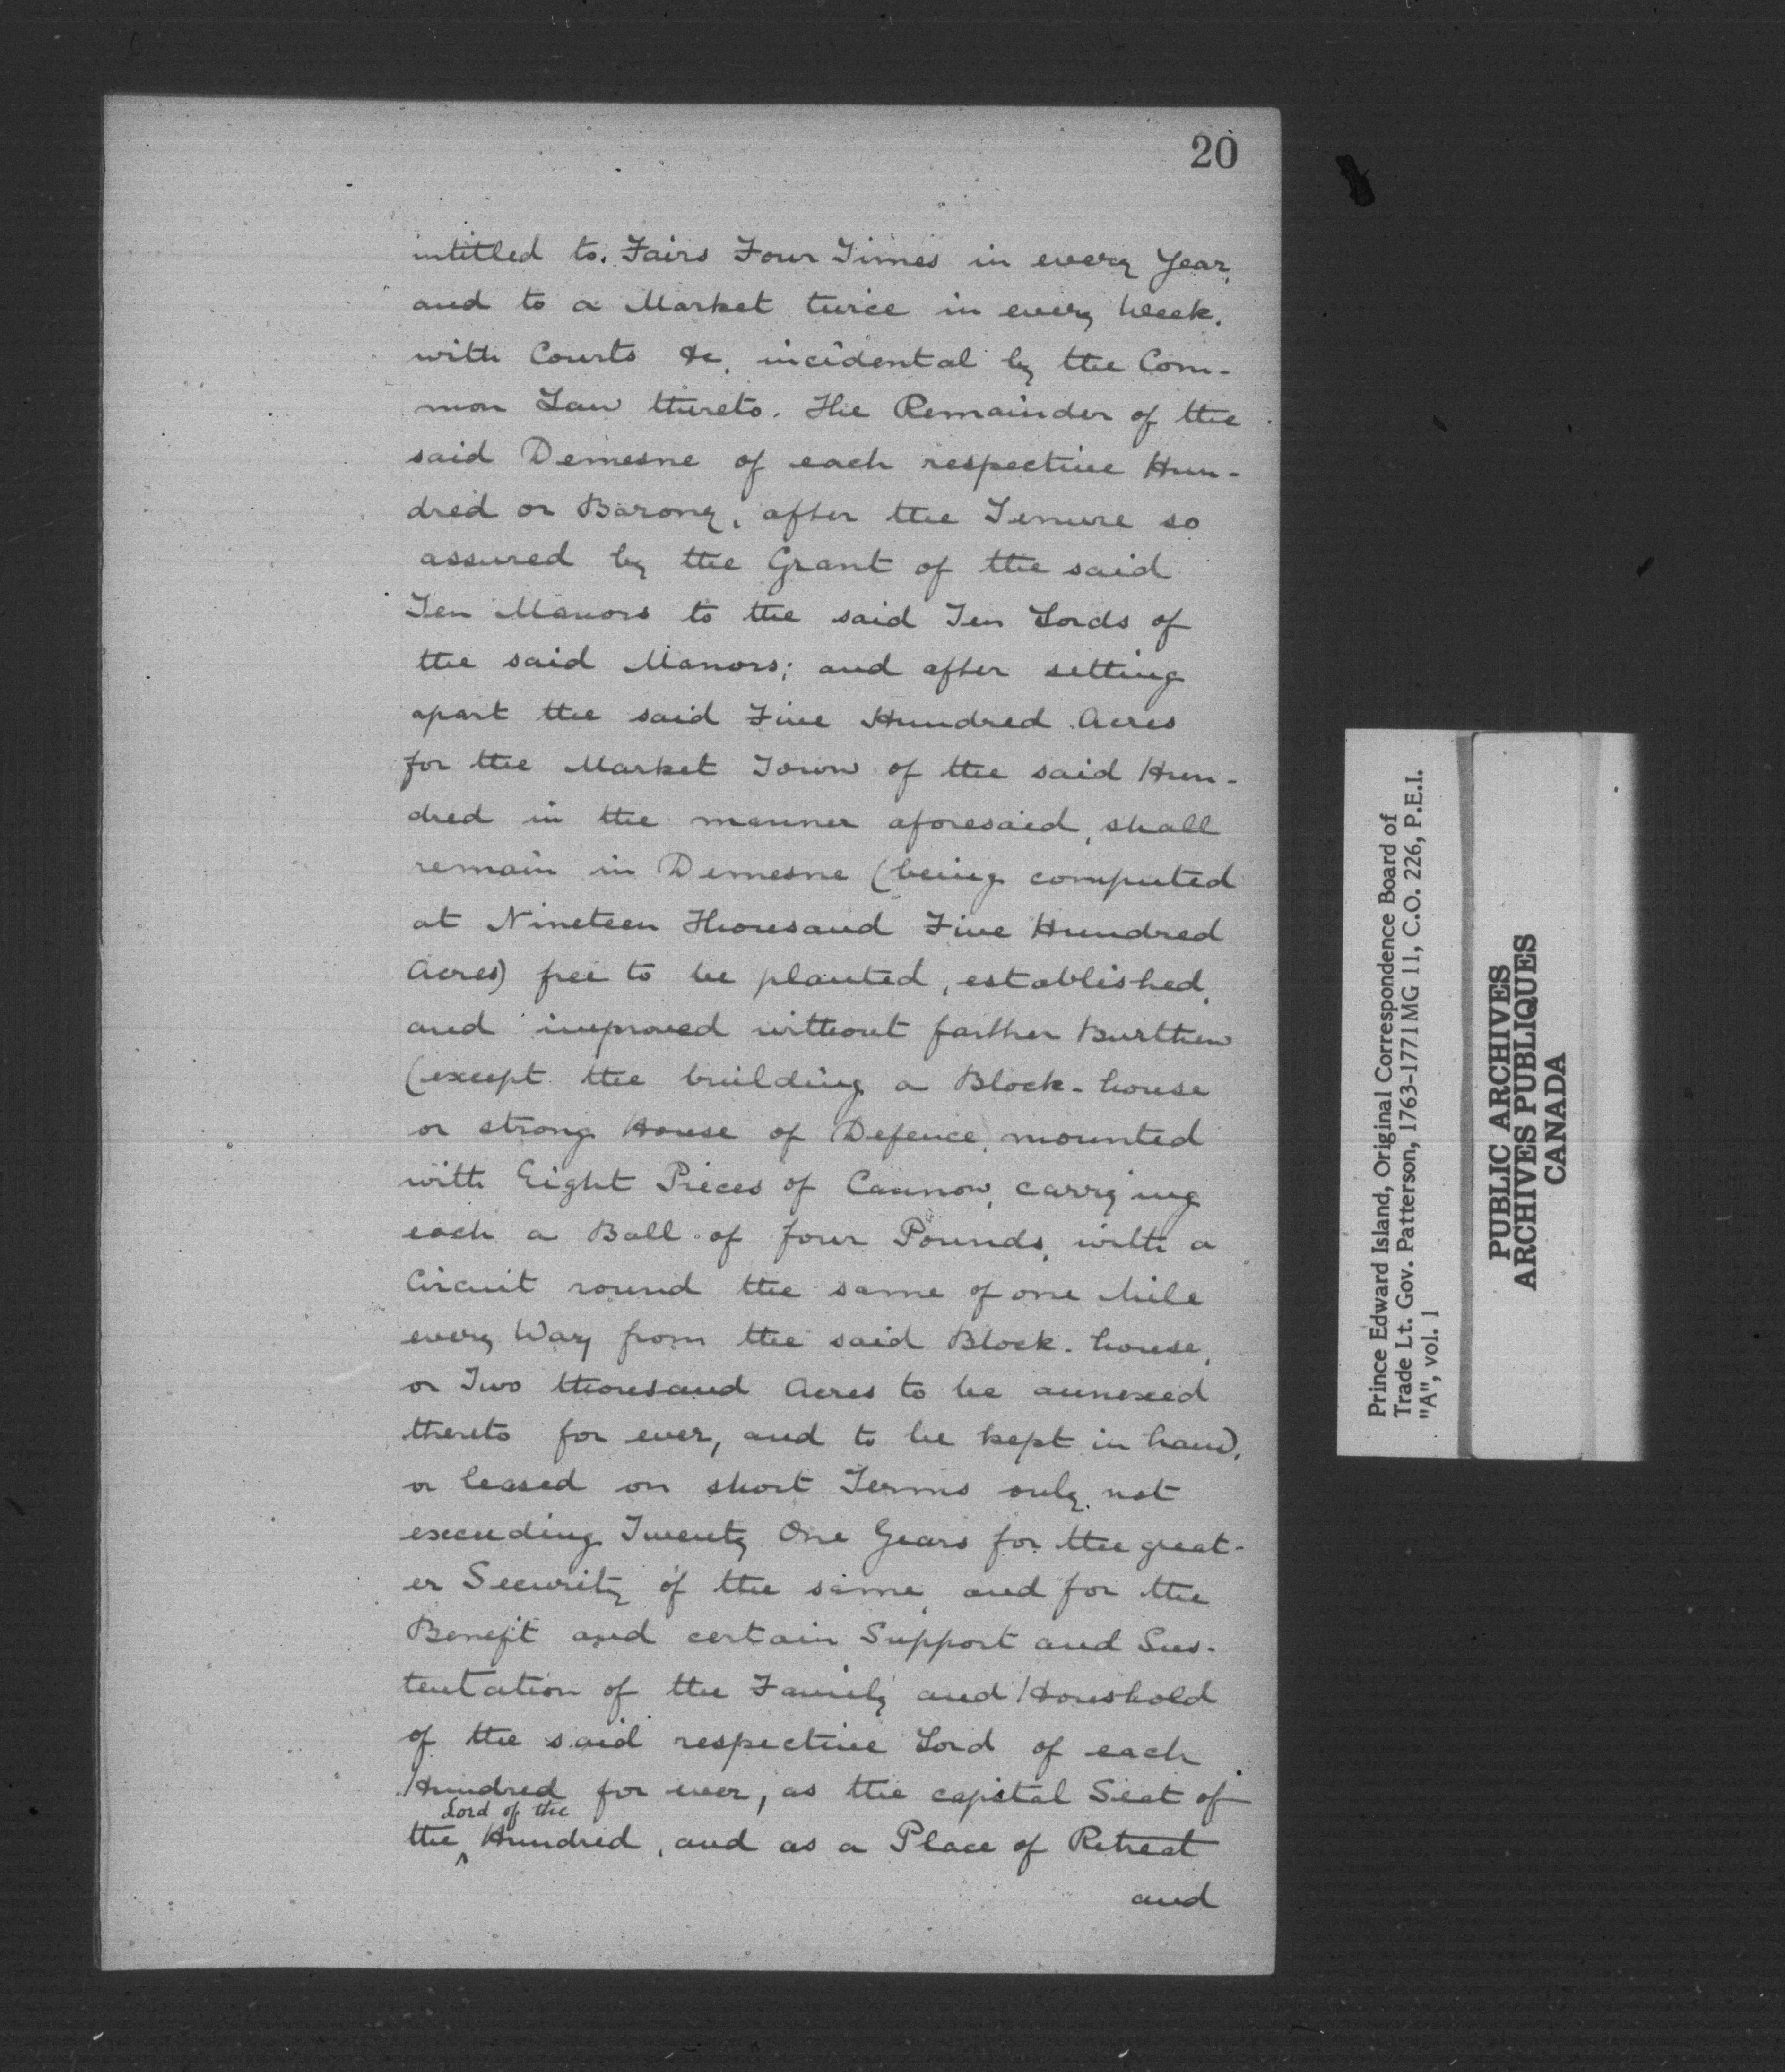 20
intitled to. Fairs Four Times in every Year,
and to a Market twice in every Week,
with Courts &c, incidental by the Com-
mon Law thereto. The Remainder of the
said Demesne of each respective Hun-
dred or Barony, after the Tenure so
assured by the Grant of the said
Ten Manors to the said Ten Lords of
the said Manors; and after setting
apart the said Five Hundred Acres
for the Market Town of the said Hun-
dred in the manner aforesaid, shall
remain in Demesne (being computed
at Nineteen Thousand Five Hundred
Acres) free to be planted, established,
and improved without farther Burthen
(except the building a Block-house
or strong House of Defence, mounted
with Eight Pieces of Cannon, carrying
each a Ball of four Pounds, with a
Circuit round the same of one Mile
every Way from the said Block-house,
or Two thousand Acres to be annexed
thereto for ever, and to be kept in hand,
or leased on short Terms only, not
exceeding Twenty One Years for the great-
er Security of the same, and for the
Benefit and certain Support and Sus-
tentation of the Family and Houshold
of the said respective Lord of each
Hundred for ever, as the capital Seat of
Lord of the
the ^ Hundred, and as a Place of Retreat
and
Prince Edward Island, Original Correspondence Board of
Trade Lt. Gov. Patterson, 1763-1771 MG 11, C.O. 226, P.E.I.
"A", vol. 1
PUBLIC ARCHIVES
ARCHIVES PUBLIQUES
CANADA